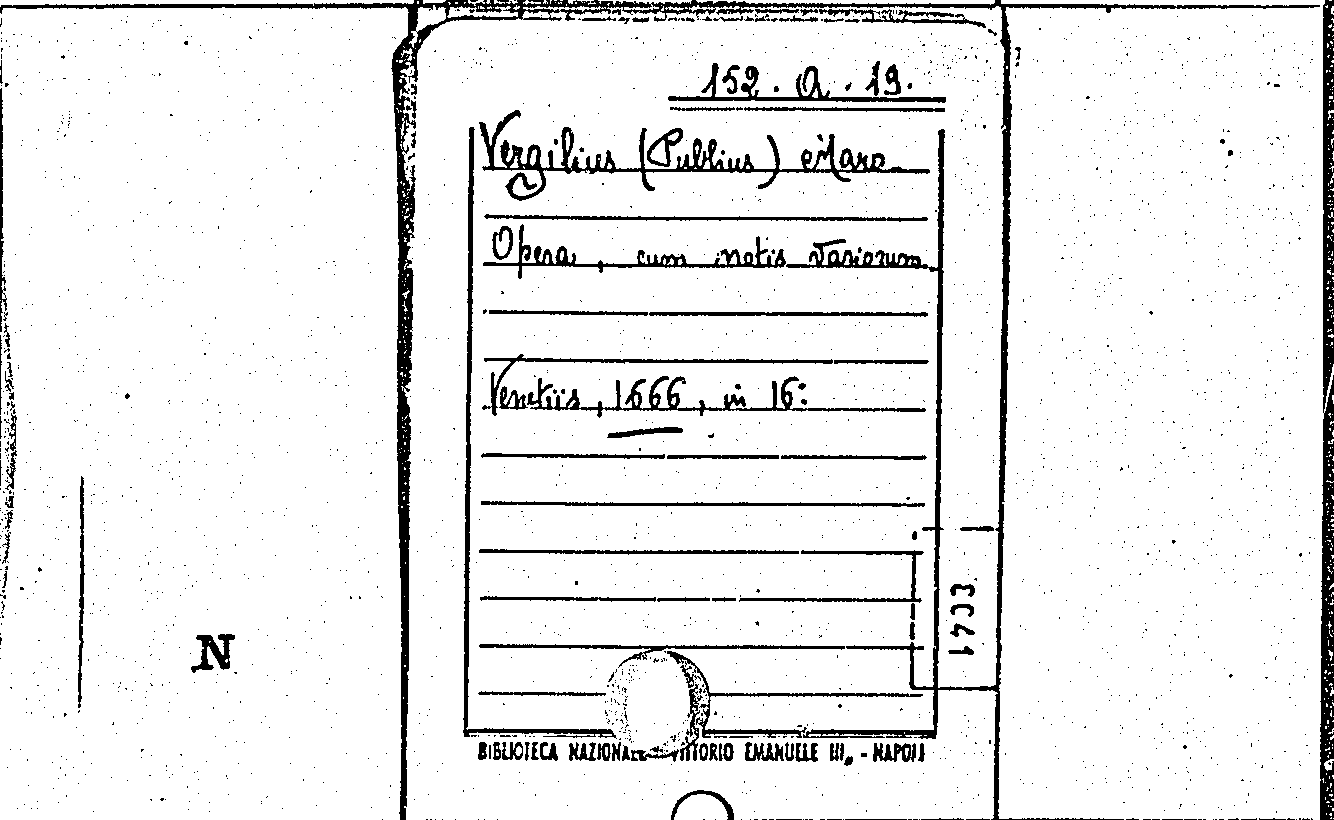 152. A. 19.
Vergilius (Publius) Maro
Opera, cum notis variorum.
Venetiis, 1666, in 16:
N
BIBLIOTECA NAZIONALE VITTORIO EMANUELE III, - NAPOLI